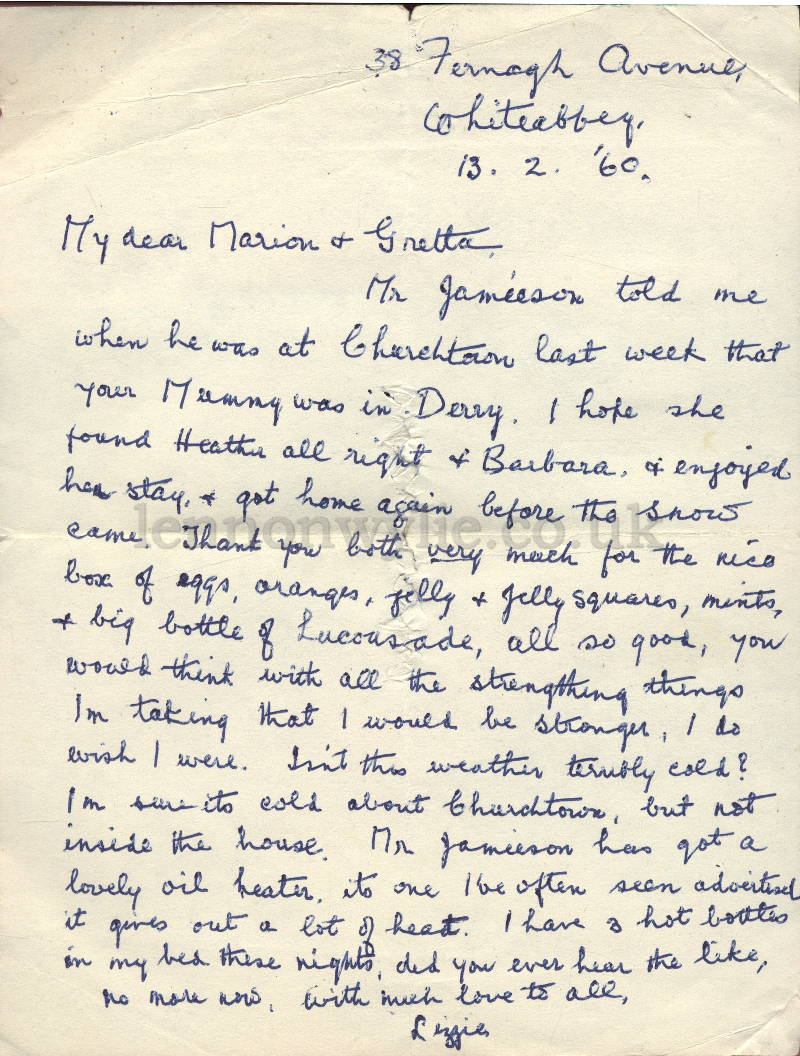 38 Fernagh Avenue,
Whiteabbey.
13. 2. '60.
My dear Marion & Gretta,
Mr Jamieeson told me
when he was at Churchtown last week that
your Mummy was in Derry. I hope she
found Heather all right & Barbara, & enjoyed
her stay, & got home again before the snow
came. Thank you both very much for the nice
box of eggs, oranges, jelly & jelly squares, mints,
& big bottle of Lucousade, all so good, you
would think with all the strengthing things
I'm taking that I would be stronger, I do
wish I were. Isn't this weather terribly cold?
I'm sure its cold about Churchtown, but not
inside the house. Mr Jamieeson has got a
lovely oil heater, its one I've often seen advertised
it gives out a lot of heat. I have 3 hot bottles
in my bed these nights, did you ever hear the like,
no more now, with much love to all,
Lizzie
lennonwylie.co.uk